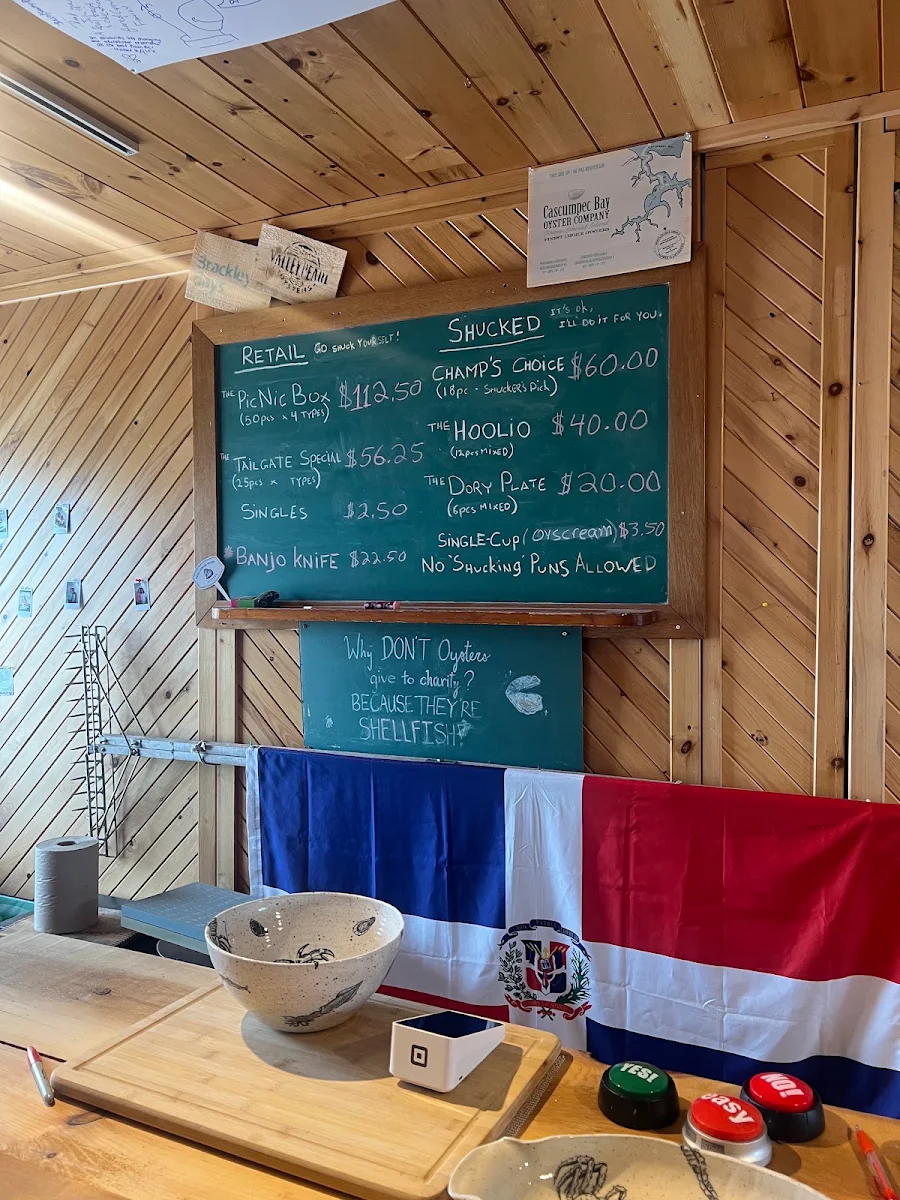 Brackley
VALLEY PEARL
OYSTERS
Cascumpec Bay
OYSTER COMPANY
FINEST CHOICE OYSTERS
RETAIL GO SHUCK YOURSELF!
THE PICNIC BOX $112.50
(50pcs x 4 TYPES)
THE TAILGATE SPECIAL $56.25
(25pcs x TYPES)
SINGLES $2.50
*BANJO KNIFE $22.50
SHUCKED IT'S OK,
I'LL DO IT FOR YOU.
CHAMP'S CHOICE $60.00
(18pc - SHUCKER'S PICK)
THE HOOLIO $40.00
(12pcs MIXED)
THE DORY PLATE $20.00
(6pcs MIXED)
SINGLE-CUP (OYSCREAM) $3.50
NO 'SHUCKING' PUNS ALLOWED
Why DON'T Oysters
give to charity?
BECAUSE THEY'RE
SHELLFISH!
YES!
easy
NO!